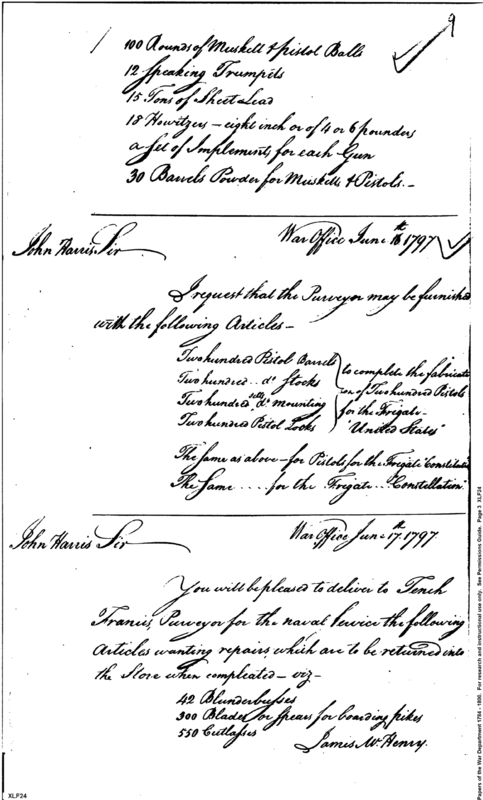 9
100 Rounds of Muskett & pistol Balls
12 Speaking Trumpets
15 Tons of Sheet Lead
18 Howitzers – eight inch or of 4 or 6 pounders
a Set of Implements for each Gun
30 Barrels Powder for Musketts & Pistols. –
War Office June 16th 1797
John Harris, Sir
I request that the Purveyor may be furnished
with the following Articles –
Two hundred Pistol Barrels
Two hundred .. do Stocks
Two hundred setts do Mounting
Two hundred Pistol Locks
to complete the fabricat
ion of Two hundred Pistols
for the Frigate –
"United States"
The same as above – for Pistols for the Frigate "Constitution
The Same .... for the Frigate .. "Constellation"
War Office June 17th 1797.
John Harris Sir
You will be pleased to deliver to Tench
Francis, Purveyor for the naval Service the following
Articles wanting repairs which are to be returned into
the Store when compleated – viz –
42 Blunderbusses
300 Blades or Spears for boarding pikes
550 Cutlasses
James McHenry.
XLF24
Papers of the War Department 1784 - 1800. For research and instructional use only. See Permissions Guide. Page 3 XLF24